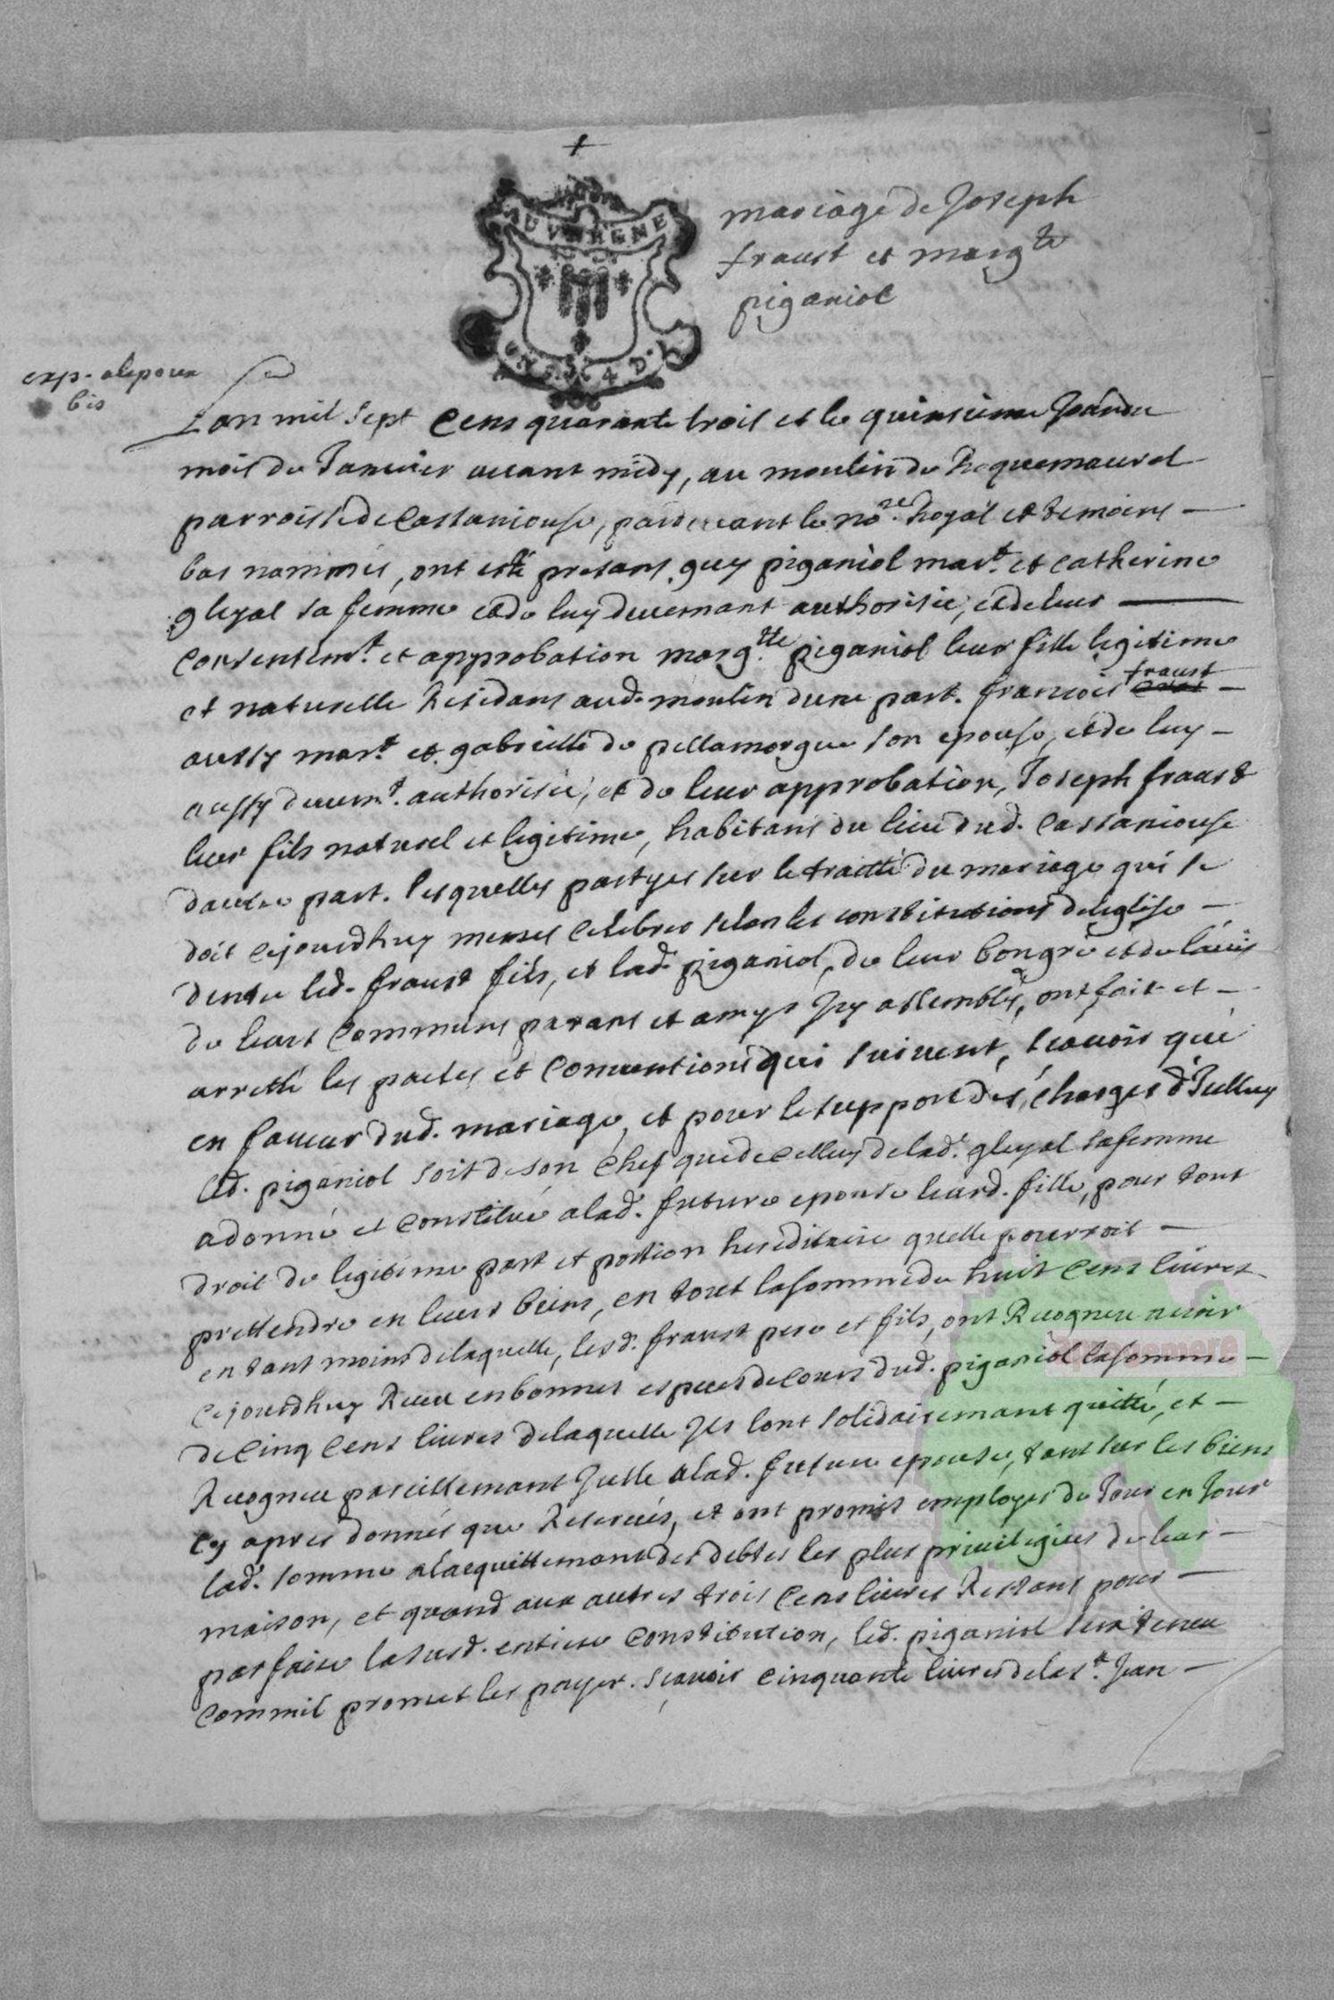 AUVERGNE
mariage de Joseph
fraust et marg.te
piganiol
exp. alepoux
bis
Lan mil sept cens quarante trois et le quinsieme Jour du
mois de Janvier avant midy, au moulin de Roquemaurel
parroisse de Castaniouse, pardevant le no.re Royal et temoins
bas nommés, ont esté presans guy piganiol mar.t et catherine
gleyal sa femme et de luy duement authorisée, et de leur
consentem.t et approbation marg.tte piganiol leur fille legitime
et naturelle Residans aud. moulin dune part. francois fraust
aussy mar.t et gabrielle de pellamorgue son epouse, et de luy
aussy duem.t authorisée, et de leur approbation, Joseph fraust
leur fils naturel et legitime, habitans du lieu dud. Castaniouse
dautre part. lesquelles partyes sur le traitté du mariage qui se
doit cejourdhuy mesmes celebrer selon les constitutions deleglise
dentre led. fraust fils, et lad. piganiol, de leur bongré et de lavis
de leurs communs parans et amys Icy assemblés, ont fait et
arretté les pactes et conventions qui suivent, scavoir que
en faveur dud. mariage, et pour le support des charges dIcelluy
led. piganiol soit de son chef que de celluy de lad. gleyal sa femme
a donné et constitué a lad. future epouse leurd. fille, pour tout
droit de legitime part et portion hereditaire quelle pourroit
prettendre en leurs biens, en tout la somme de huit cens livres
en tant moins de laquelle, lesd. fraust pere et fils, ont Recogneu avoir
cejourdhuy Receu en bonnes especes de cours dud. piganiol la somme
de cinq cens livres delaquelle Ils lont solidairemant quitté, et
Recogneu pareillemant Icelle a lad. future epouse, tant sur les biens
cy apres donnés que Reservés, et ont promis employer de Jour en Jour
lad. somme a lacquittemant des debtes les plus privilegiées de leur
maison, et quand aux autres trois cens livres Restans pour
parfaire la susd. entiere constitution, led. piganiol sera teneu
comme il promet les payer. scavoir cinquante livres de la s.t Jean